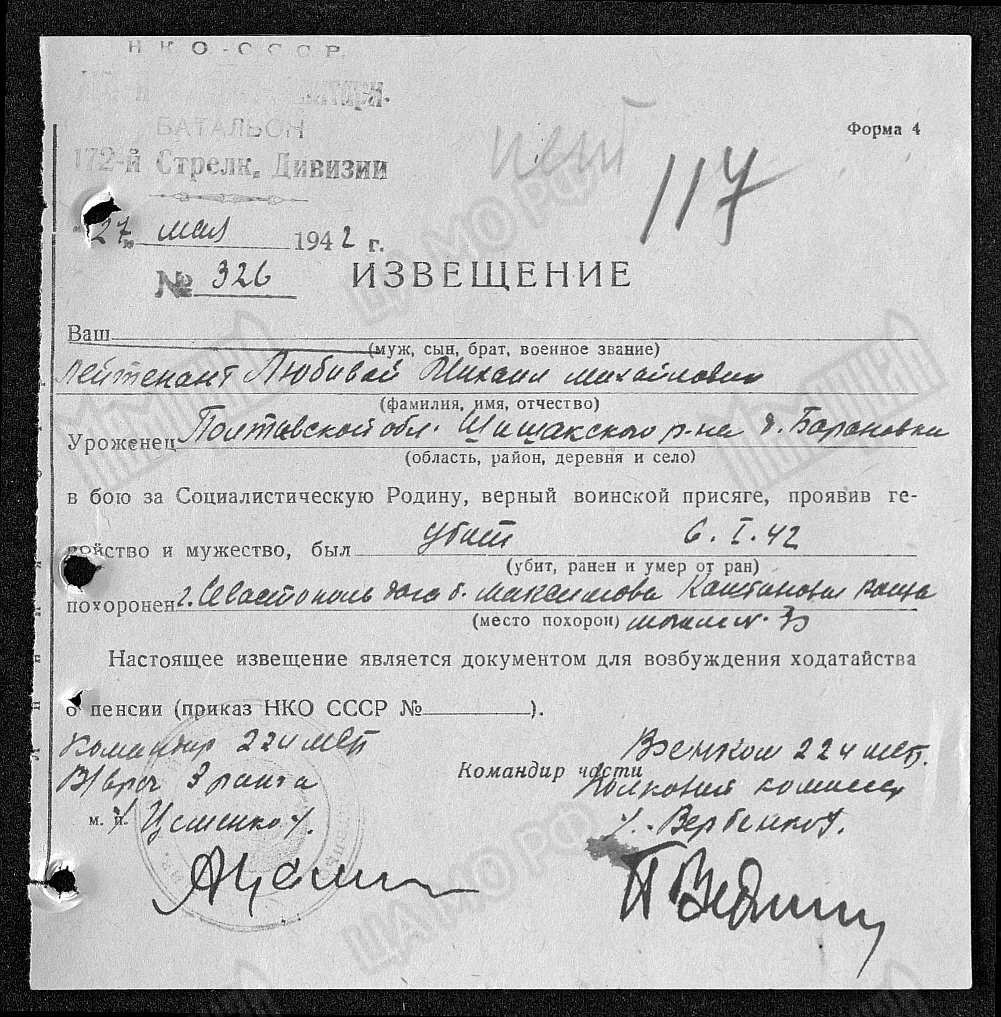 НКО-СССР.
БАТАЛЬОН
172-й Стрелк. Дивизии
Форма 4
нет
117
"27" мая 1942 г.
№ 326
ИЗВЕЩЕНИЕ
Ваш
(муж, сын, брат, военное звание)
Лейтенант Любивой Михаил Михайлович
(фамилия, имя, отчество)
Уроженец Полтавской обл. Шишакского р-на д. Барановка
(область, район, деревня и село)
в бою за Социалистическую Родину, верный воинской присяге, проявив ге-
ройство и мужество, был убит 6.I.42
(убит, ранен и умер от ран)
похоронен г. Севастополь дача б. Максимова Каштановая роща
(место похорон) могила N. 33
Настоящее извещение является документом для возбуждения ходатайства
о пенсии (приказ НКО СССР №).
Командир 224 МСП
В/врач 3 ранга
м. п. Цеменко
Командир части
Военком 224 МСП.
Полковой комиссар
ЦАМО РФ
ЦАМО РФ